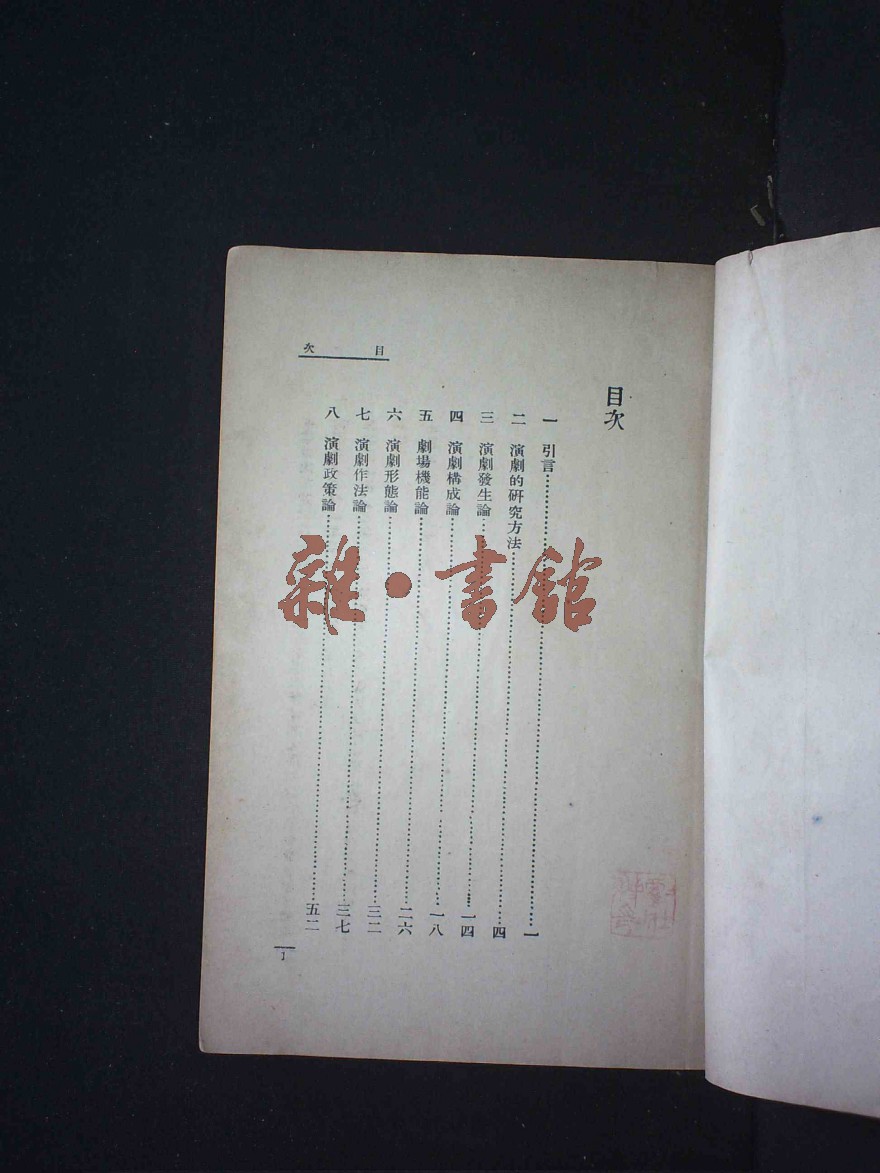 目次
目次
一 引言……一
二 演劇的研究方法……四
三 演劇發生論……一四
四 演劇構成論……一八
五 劇場機能論……二六
六 演劇形態論……三二
七 演劇作法論……三七
八 演劇政策論……五二
1
雜·書館